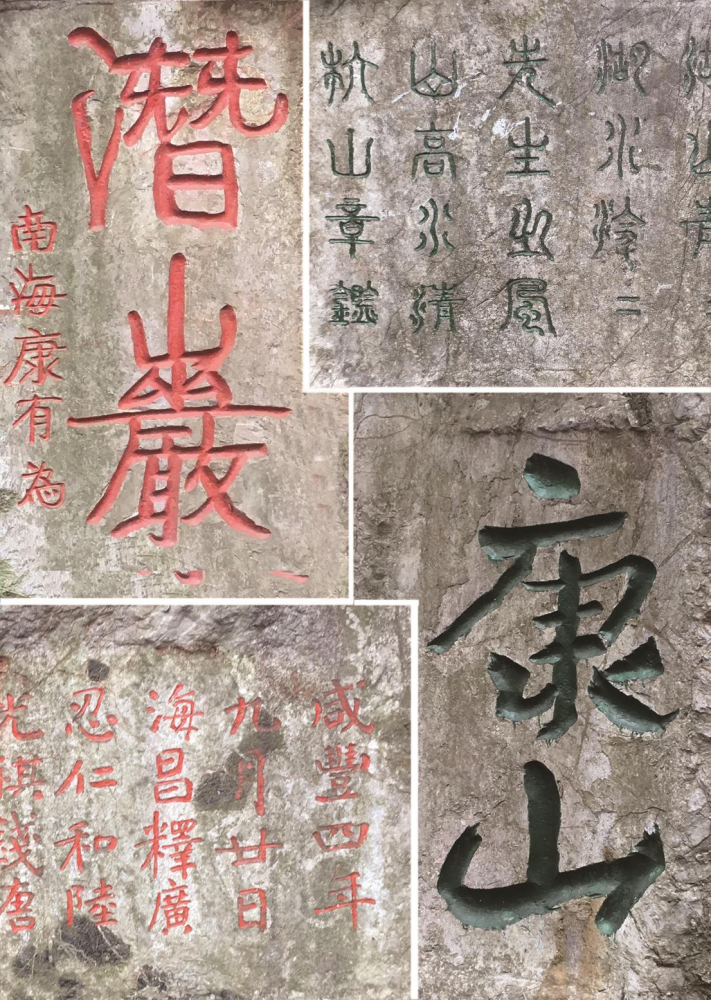 潛巖
南海康有為
湖山青
湖水泠二
先生之風
山高水清
杭山章鑑
康山
咸豐四年
九月廿日
海昌釋廣
忍仁和陸
光祺錢唐